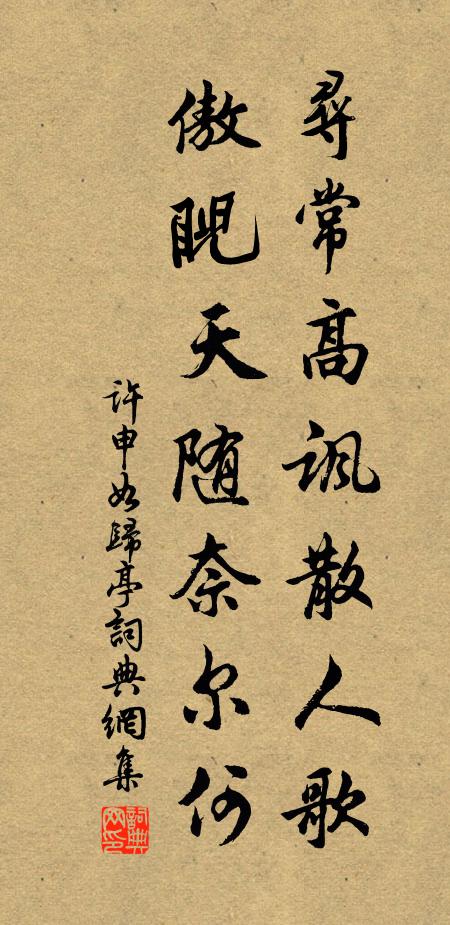 尋常高諷散人歌
傲睨天随奈尔何
许申如歸亭詞典網集
詞典網印